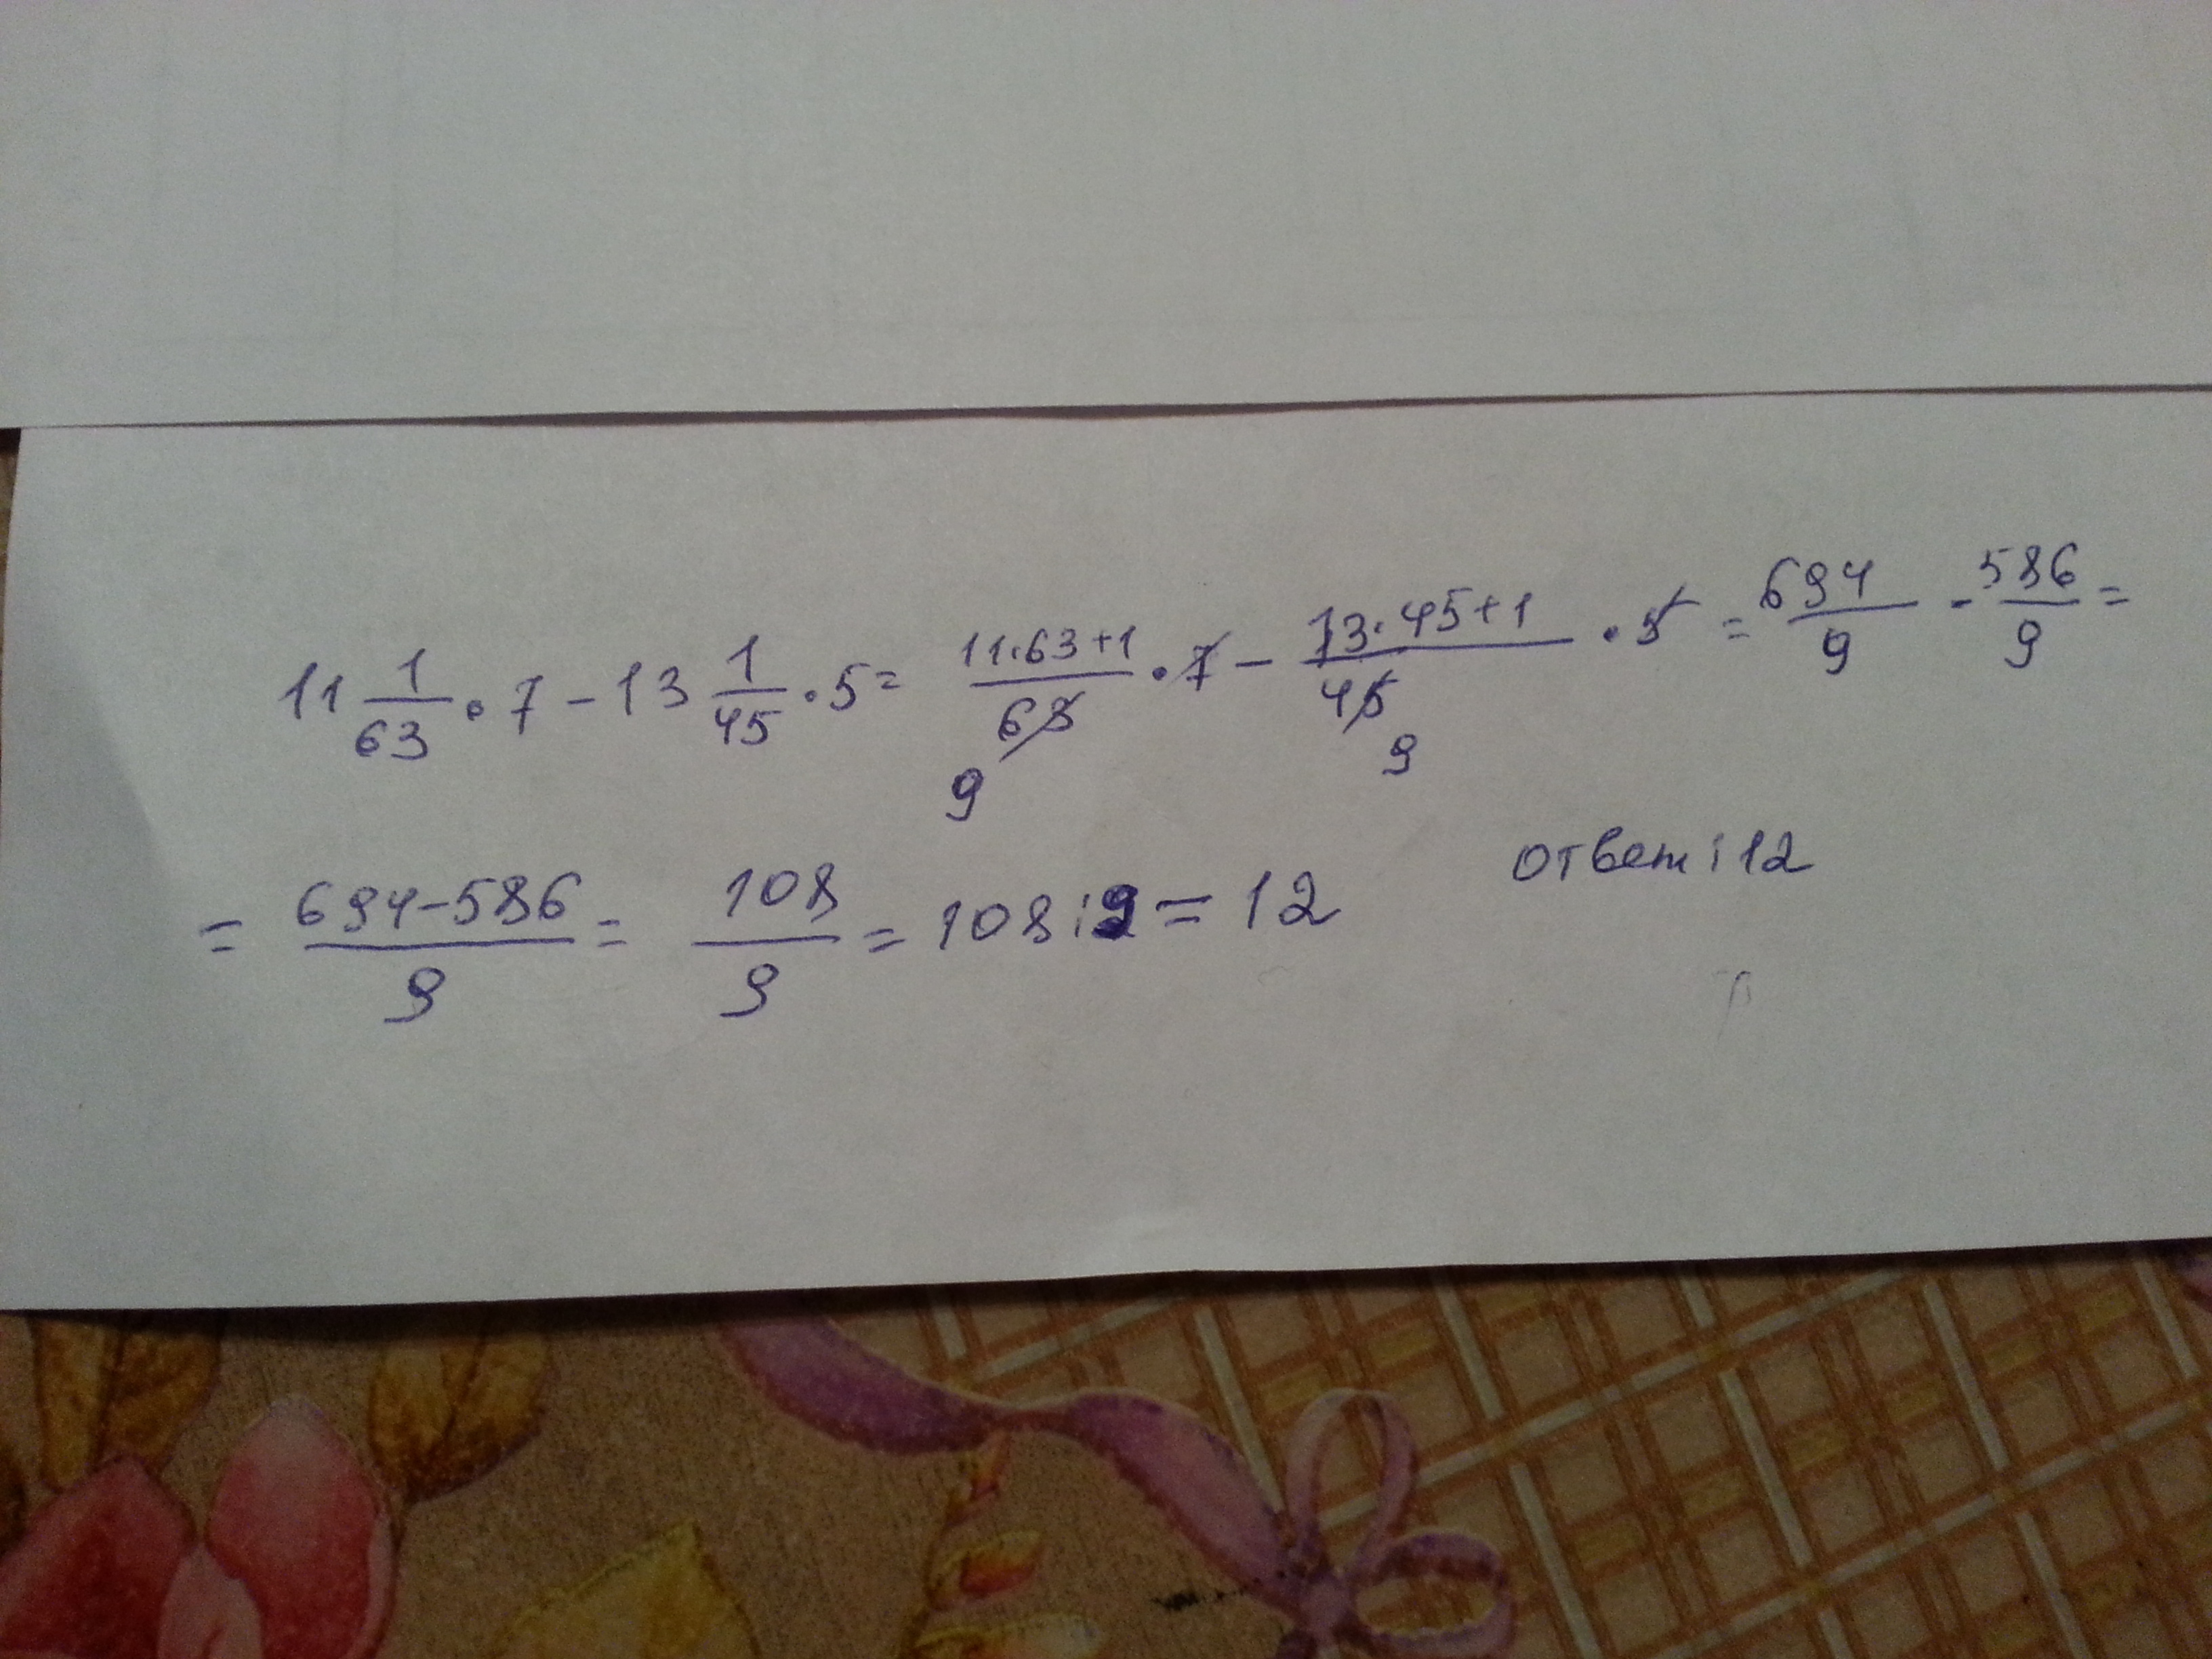 11 1/63 · 7 - 13 1/45 · 5 = (11·63+1)/63 · 7 - (13·45+1)/45 · 5 = 694/9 - 586/9 =
9 9
= (694-586)/9 = 108/9 = 108:9 = 12 ответ: 12